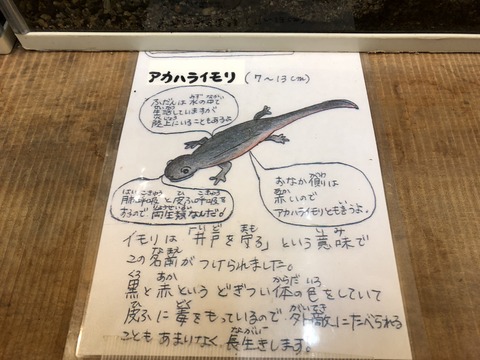 アカハライモリ (7～13cm)
ふだんは水の中で
生活していますが
陸上にいることもあるよ
肺呼吸と皮ふ呼吸を
するので両生類なんだ。
おなか側は
赤いので
アカハライモリとも言うよ。
イモリは「井戸を守る」という意味で
この名前がつけられました。
黒と赤という どぎつい体の色をしていて
皮ふに毒をもっているので "外敵"にたべられる
こともあまりなく長生きします。